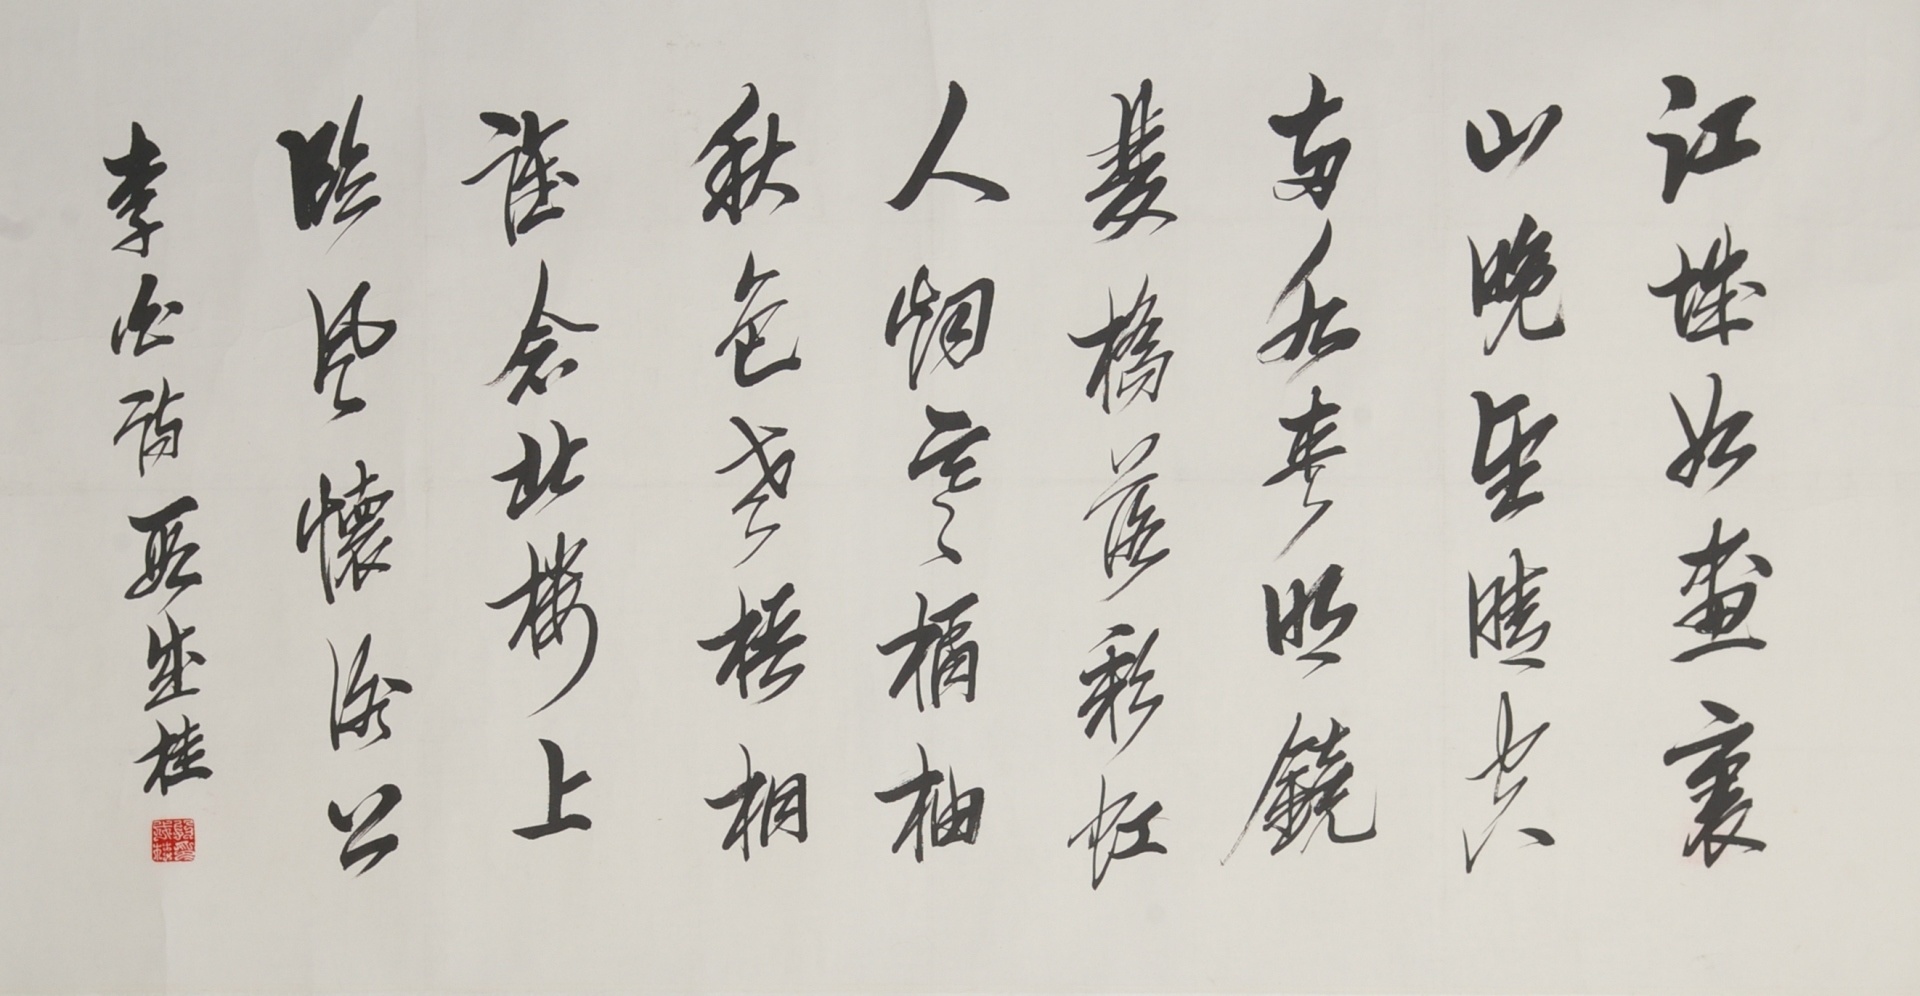 江城如畫裏
山晚望晴空
兩水夾明鏡
雙橋落彩虹
人烟寒橘柚
秋色老梧桐
誰念北樓上
臨風懷謝公
李白詩 殷成桂